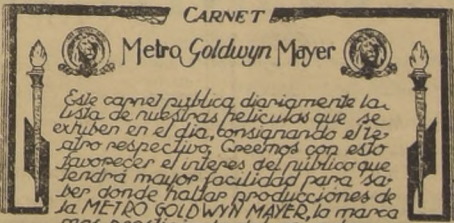 CARNET
Metro Goldwyn Mayer
Este carnet publica diariamente la
lista de nuestras peliculas que se
exhiben en el dia, consignando el te-
atro respectivo, Creemos con esto
favorecer el interes del publico que
tendrá mayor facilidad para sa-
ber donde hallar producciones de
la METRO GOLDWYN MAYER, la marca